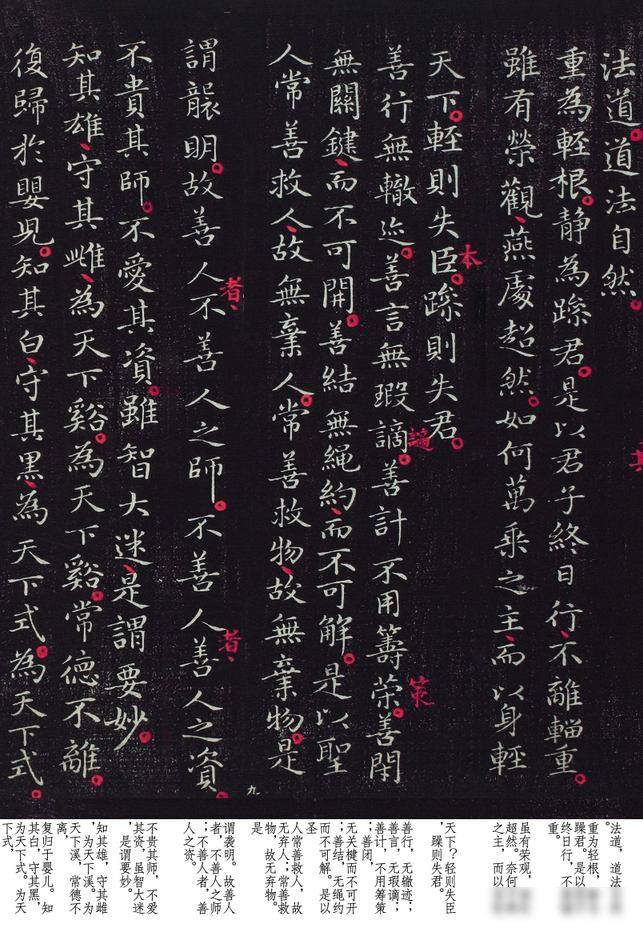 法道道法自然
重為輕根静為躁君是以君子終日行不離輜重
雖有榮觀燕處超然如何萬乘之主而以身輕
天下輕則失臣躁則失君
本
善行無轍迹善言無瑕謫善計不用籌䇲善閉
謫
策
無關鍵而不可開善結無繩約而不可解是以聖
人常善救人故無棄人常善救物故無棄物是
謂襲明故善人不善人之師不善人善人之資
者
者
九
不貴其師不愛其資雖智大迷是謂要妙
知其雄守其雌為天下谿為天下谿常德不離
復歸於嬰兒知其白守其黑為天下式為天下式
法道，道法
。
重为轻根，
躁君。是以
终日行，不
重。
虽有荣观，
超然。奈何
之主，而以
天下？轻则失臣
，躁则失君。
善行，无辙迹；
善言，无瑕谪；
善计，不用筹策
；善闭，
无关楗而不可开
；善结，无绳约
而不可解。是以
圣
人常善救人，故
无弃人；常善救
物，故无弃物。
是
谓袭明。故善人
者，不善人之师
；不善人者，善
人之资。
不贵其师，不爱
其资，虽智大迷
，是谓要妙
知其雄，守其雌
，为天下溪。为
天下溪，常德不
离，
复归于婴儿。知
其白，守其黑，
为天下式。为天
下式，